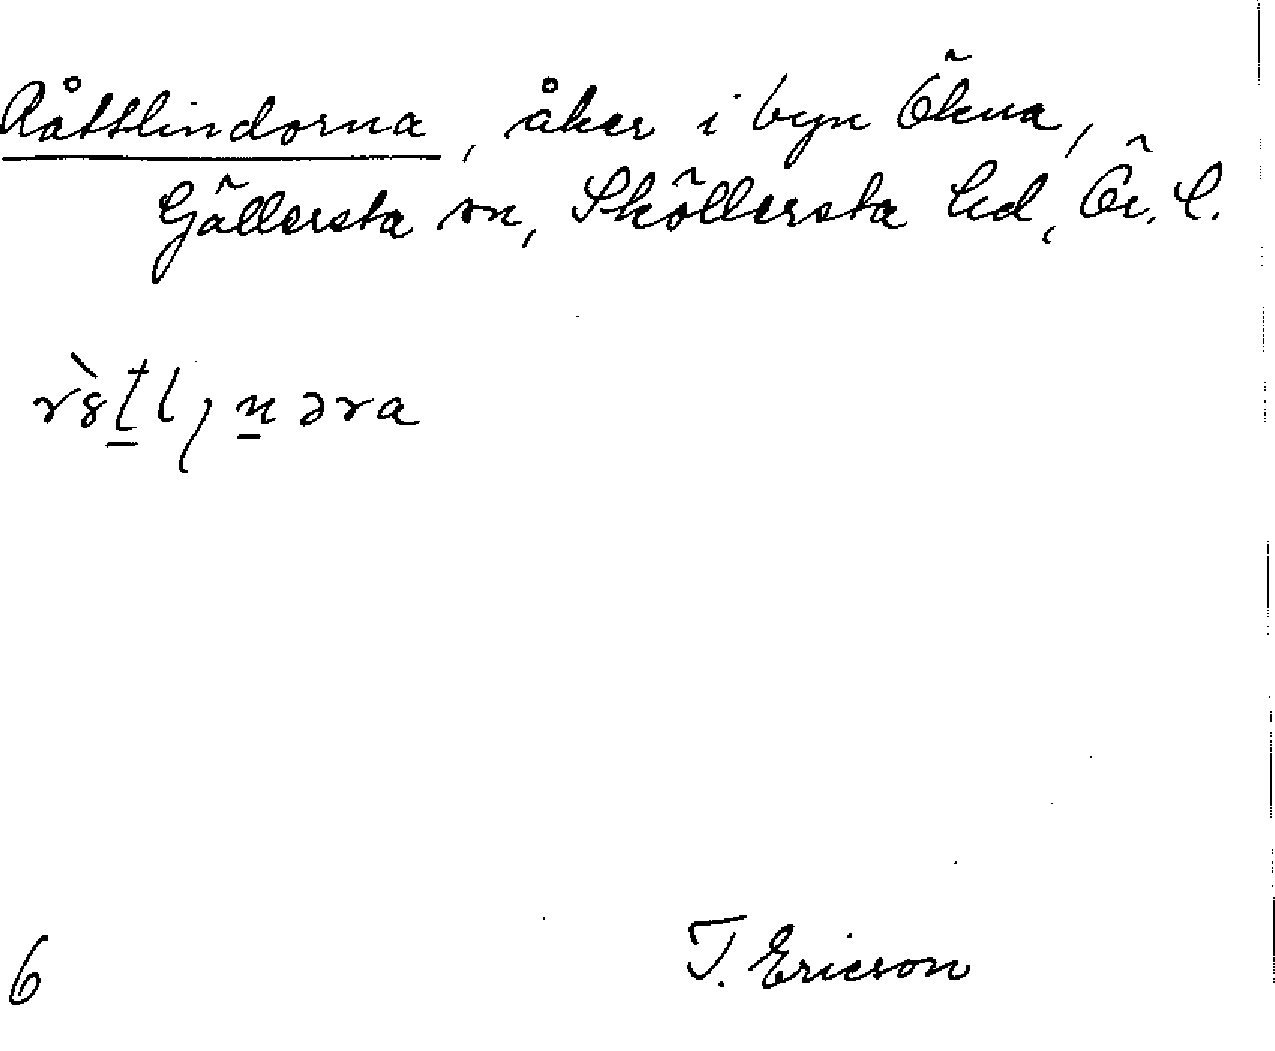 Råttlindorna, åker i byn Ökna,
Gällersta sn, Sköllersta hd, Ör. l.
6
T. Ericson